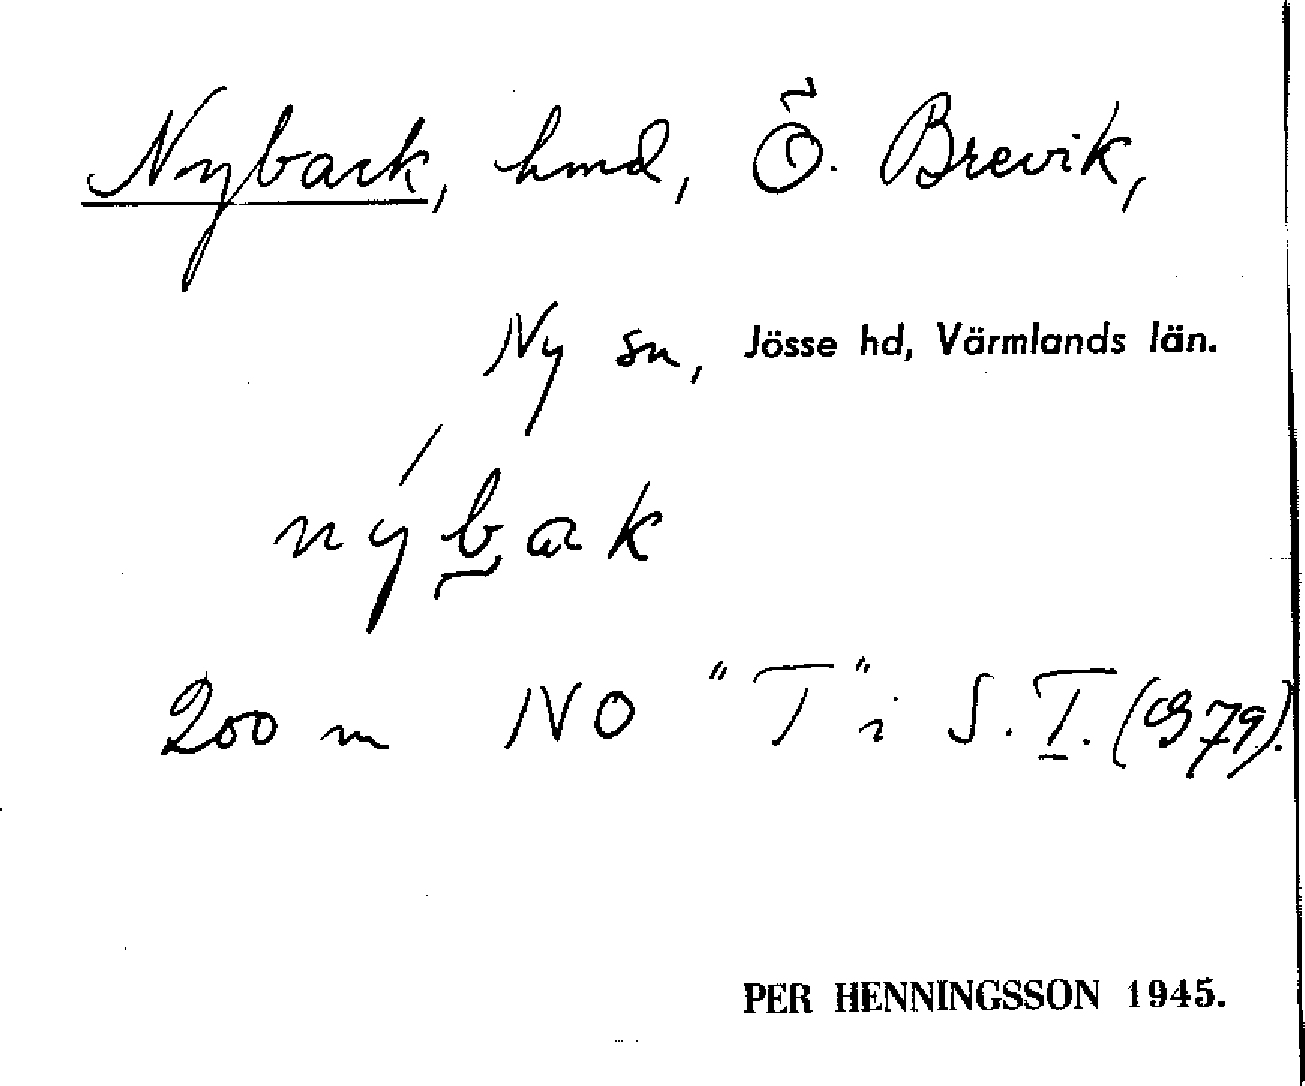 Nyback, hmd, Ö. Brevik,
Ny sn, Jösse hd, Värmlands län.
nýbak
200 m NO "T" i S. T. (979).
PER HENNINGSSON 1945.